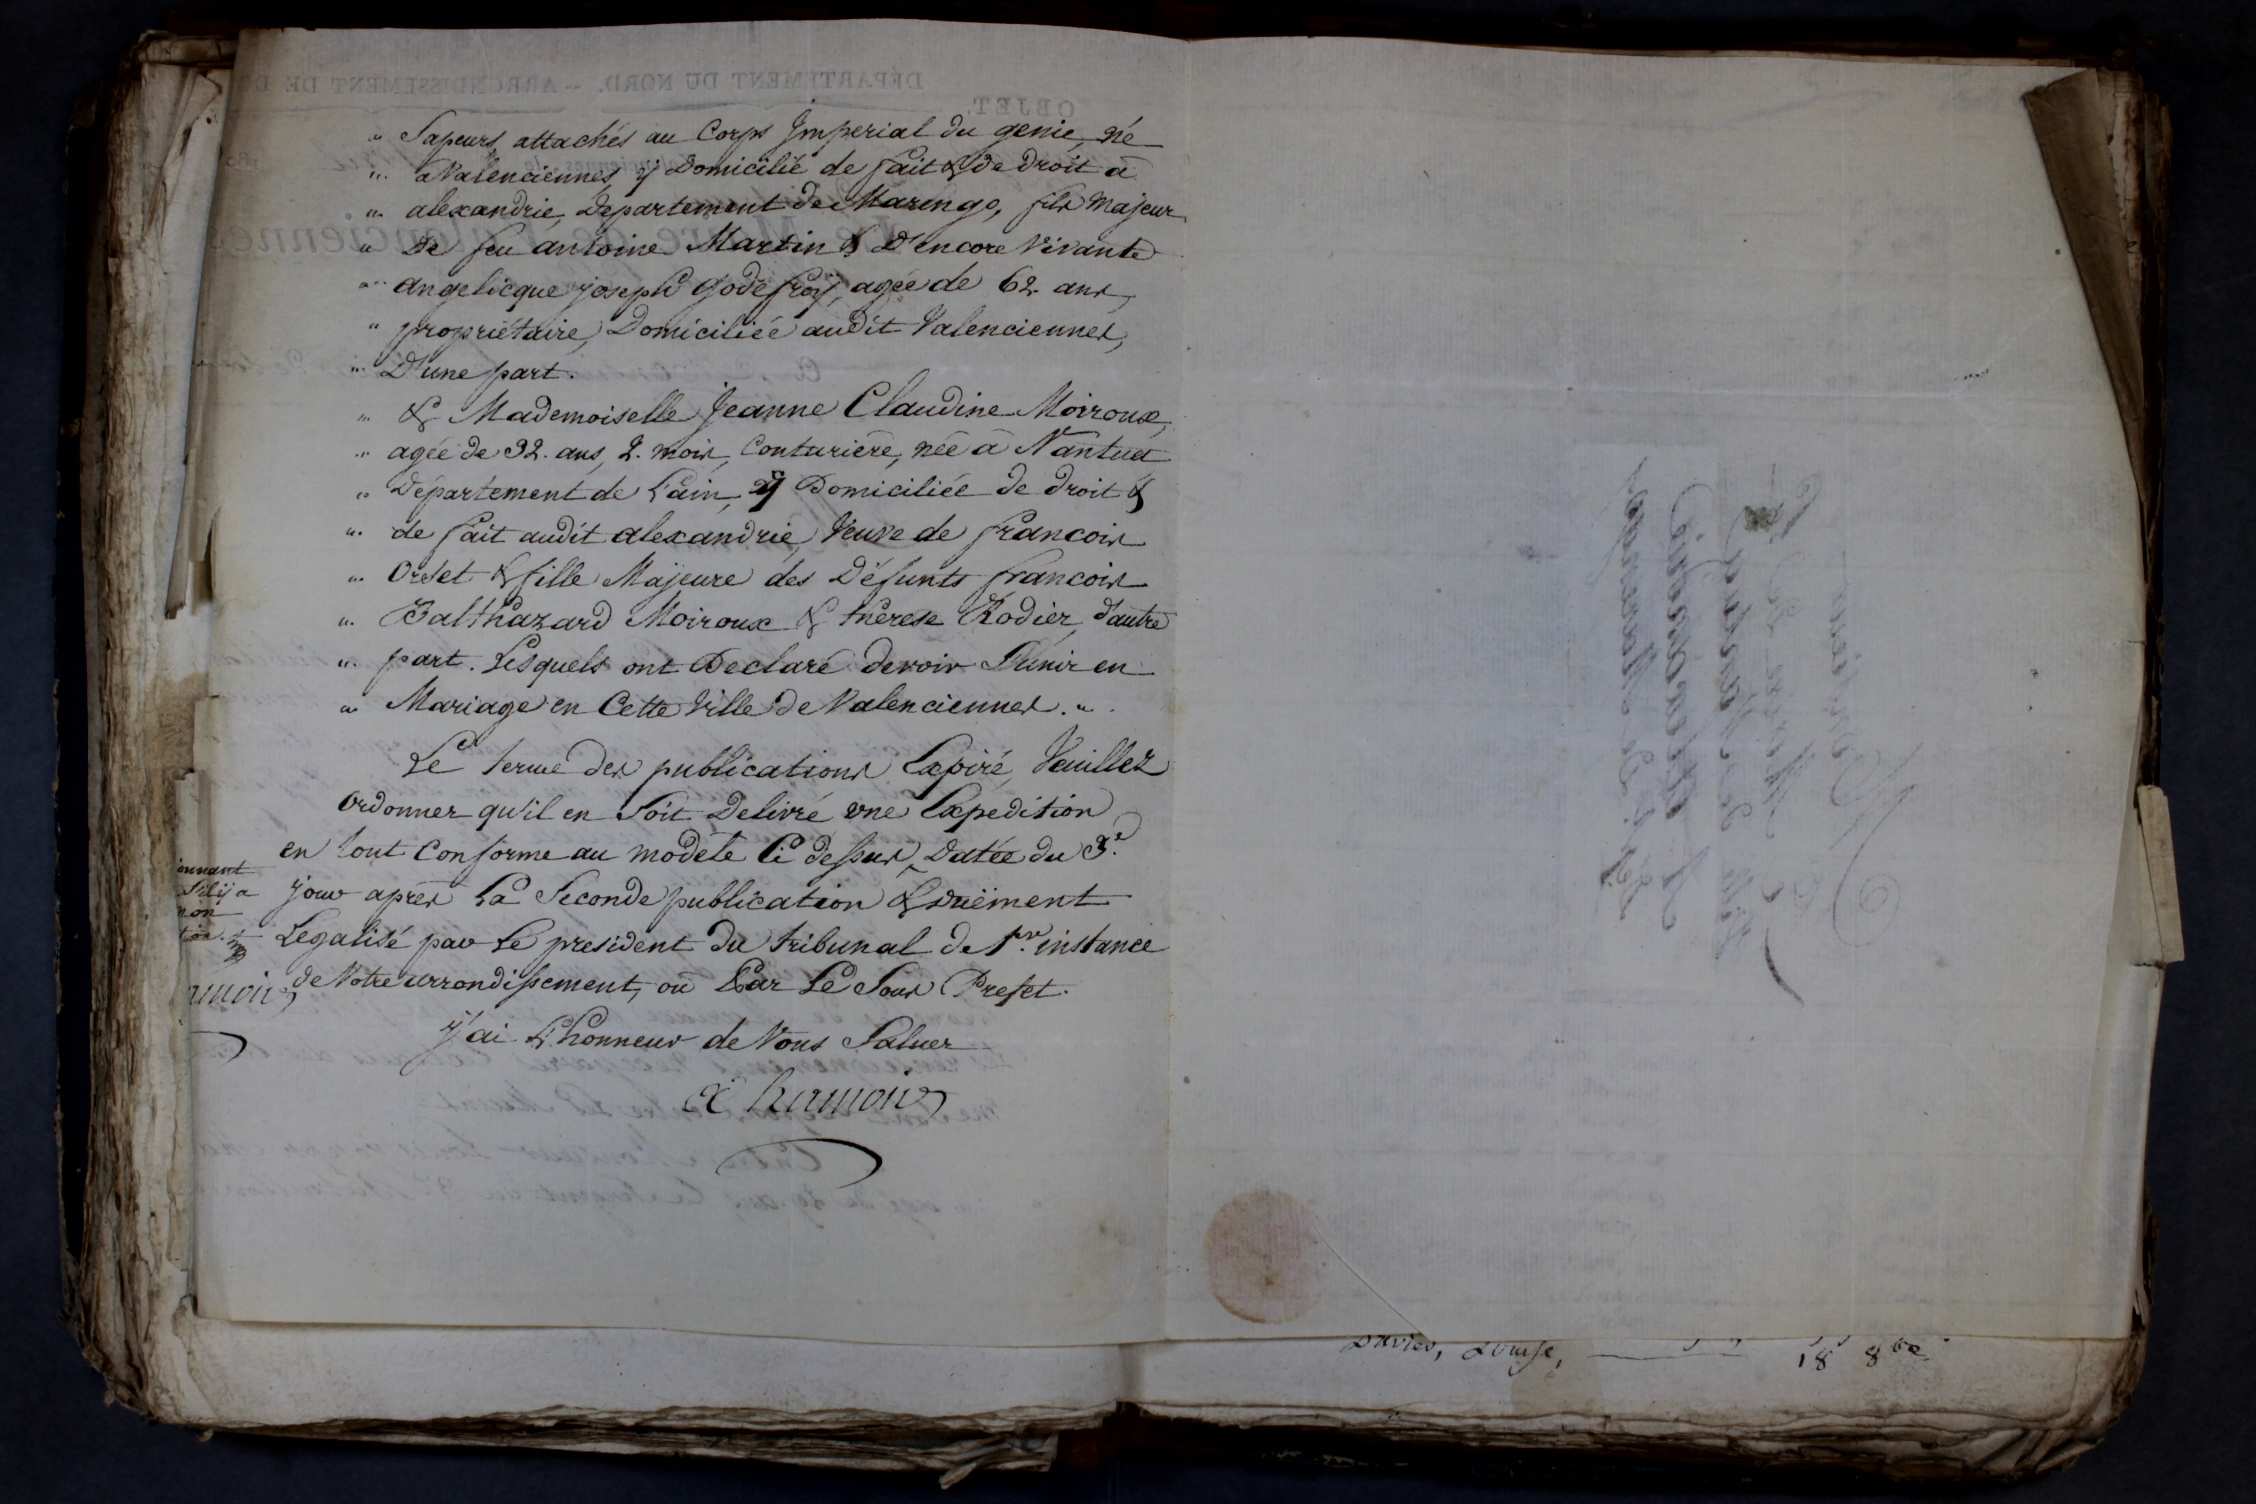 " Sapeurs attachés au Corps Imperial du genie, né
" a Valenciennes y Domicilié de fait & de droit a
" alexandrie, Departement de Maringo, fils Majeur
" De feu antoine Martin & D'encore Vivante
" angelicque joseph Godefroy, agée de 62 ans,
" propriétaire, Domiciliée audit Valenciennes,
" D'une part.
" & Mademoiselle Jeanne Claudine Moiroux,
" agée de 32. ans, 2. mois, Couturiere, née a Nantua
" Département de L'ain, y Domiciliée de droit &
" de fait audit alexandrie, Veuve de francois
" Orset & fille Majeure des Défunts francois
" Balthazard Moiroux & therese Rodier, d'autre
" part. Lesquels ont Declaré devoir S'unir en
" Mariage en Cette Ville de Valenciennes. "
Le terme des publications Expiré, Veuillez
Ordonner qu'il en soit Delivré une Expedition
en tout Conforme au modele Ci dessus, Datée du 3.e
jour après La Seconde publication & duëment
Legalisé par Le president du tribunal de 1.re instance
de Votre arrondissement, ou Par Le Sous Prefet.
j'ai L'honneur de Vous Saluer
onnant
s'il y a
non
tion.
Davies, Louise, 18 8bre
DÉPARTEMENT DU NORD. -- ARRONDISSEMENT DE
OBJET.